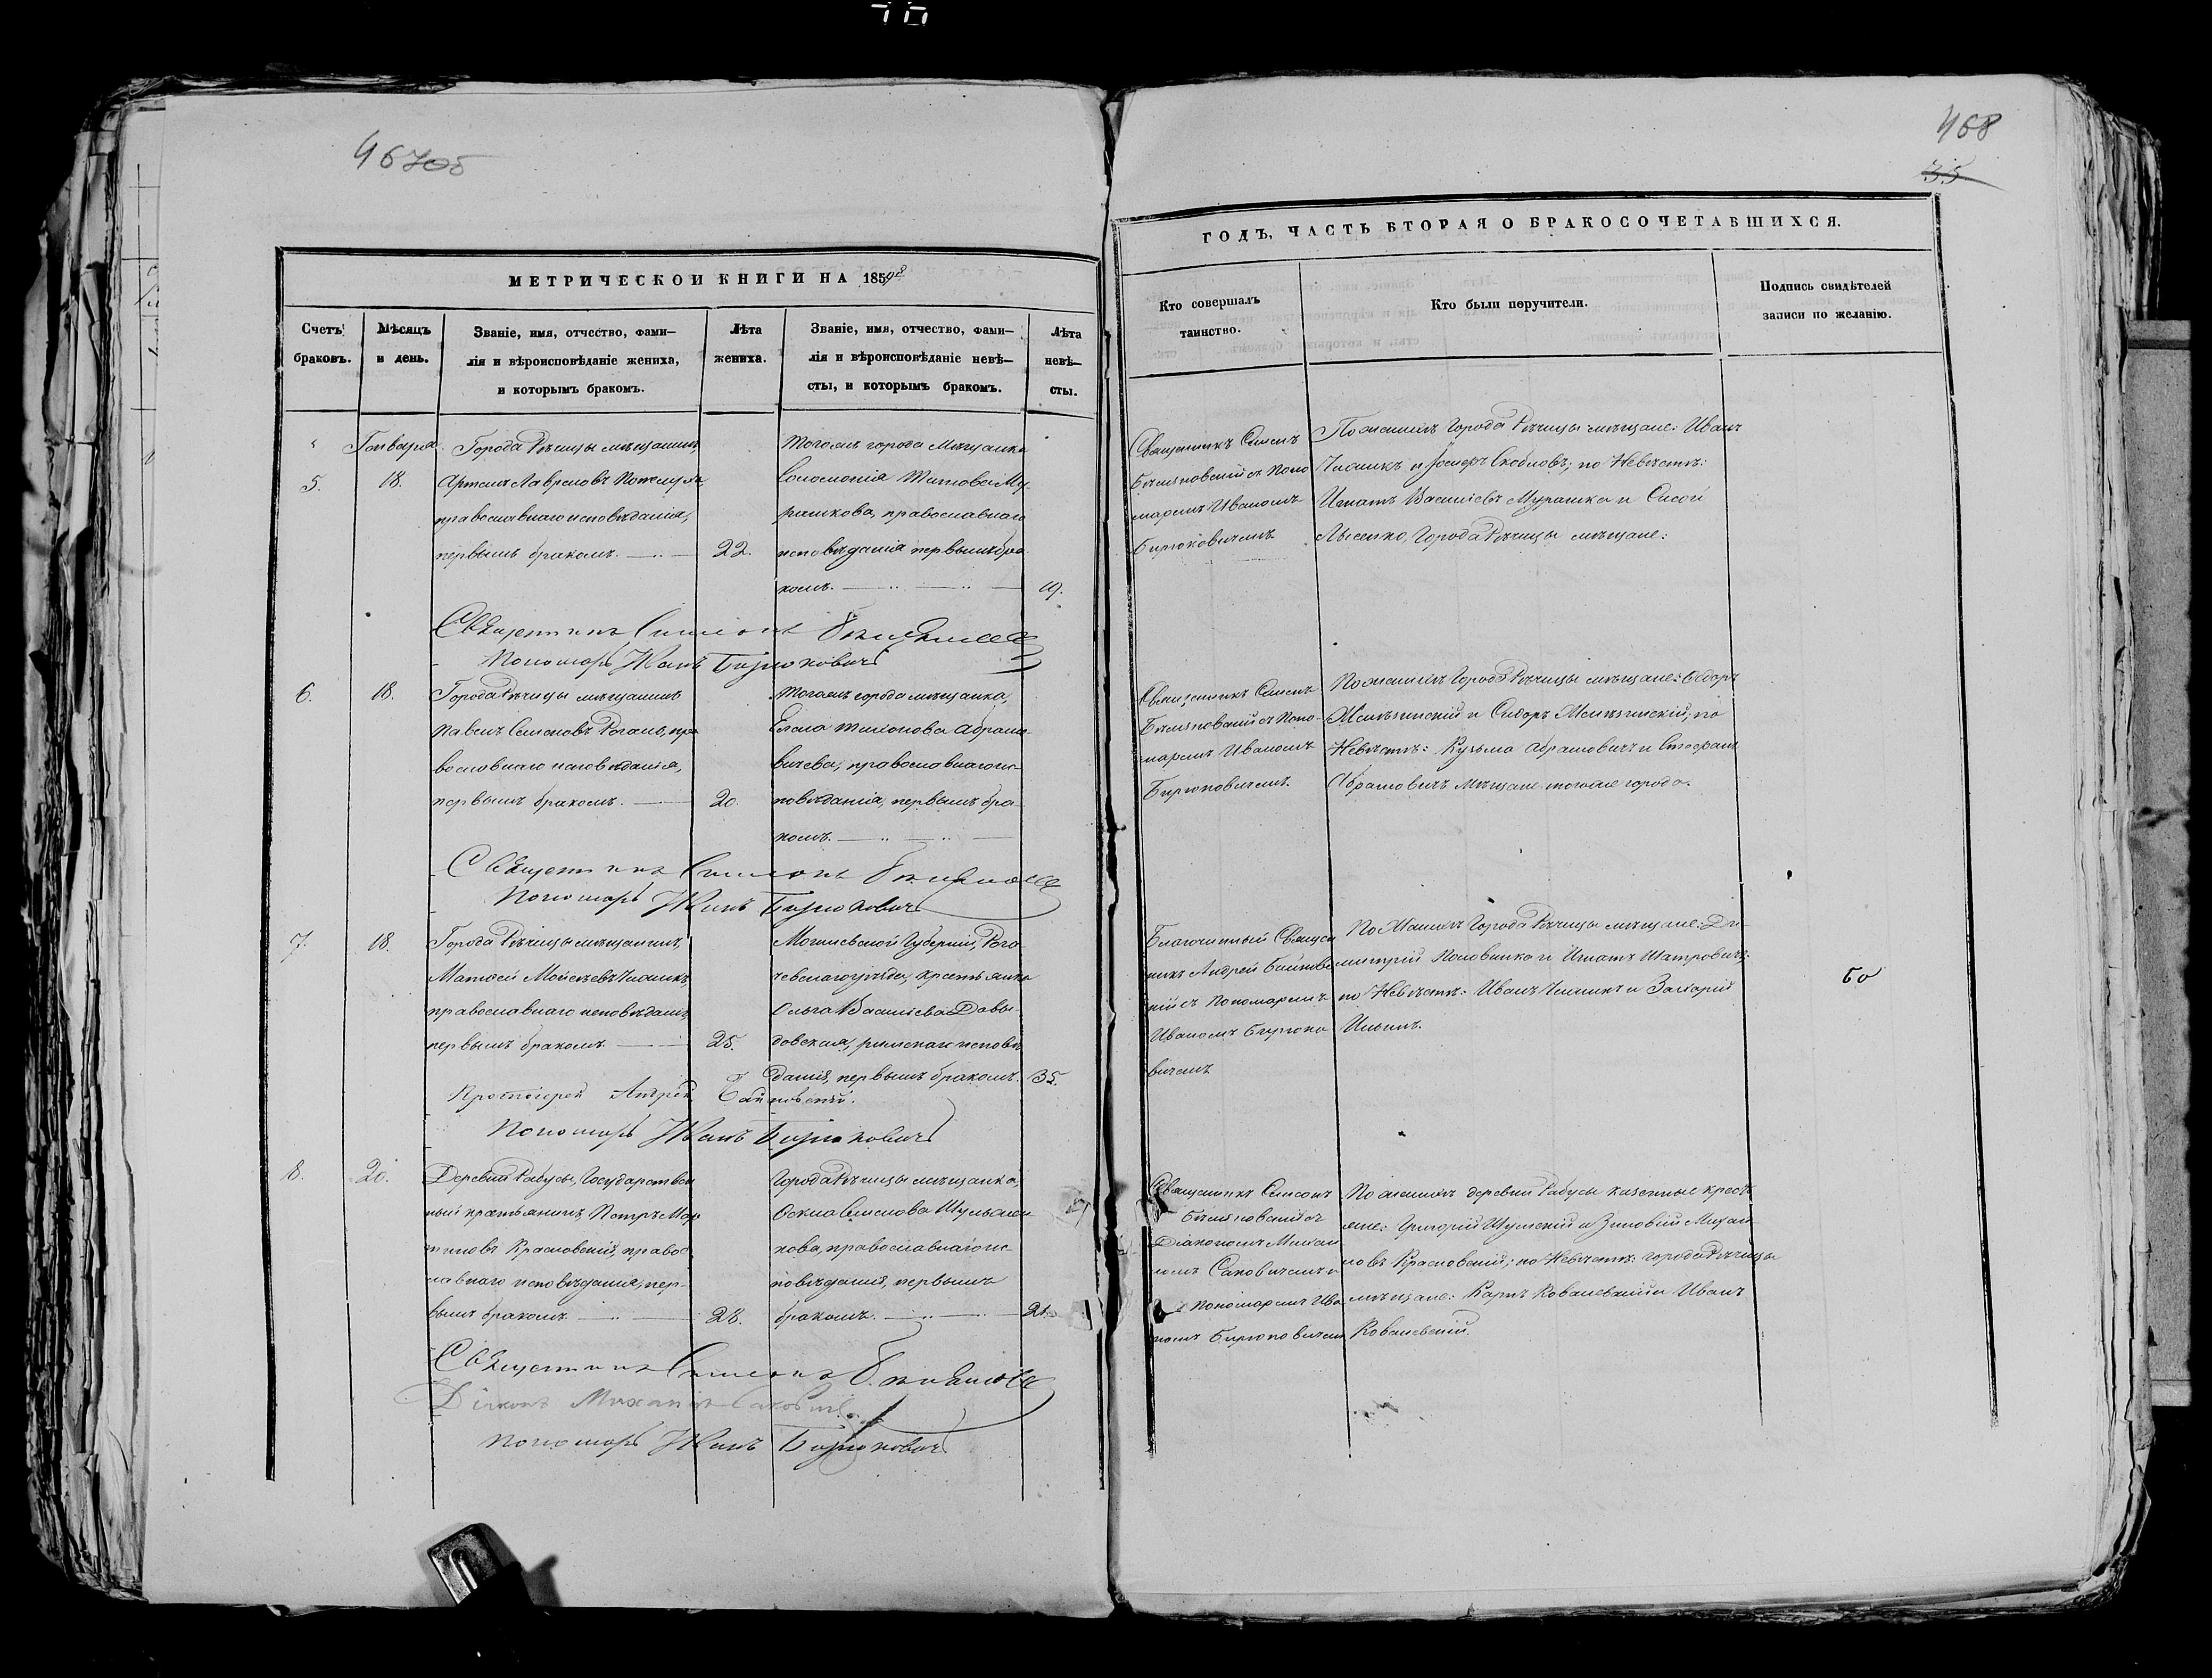 467об
468
35
МЕТРИЧЕСКОЙ КНИГИ НА 1858
ГОДЪ, ЧАСТЬ ВТОРАЯ О БРАКОСОЧЕТАВШИХСЯ.
Счетъ
браковъ.
Мѣсяцъ
и день.
Званіе, имя, отчество, фами–
лія и вѣроисповѣданіе жениха,
и которымъ бракомъ.
Лѣта
жениха.
Званіе, имя, отчество, фами–
лія и вѣроисповѣданіе невѣ–
сты, и которымъ бракомъ.
Лѣта
невѣ–
сты.
Кто совершалъ
таинство.
Кто были поручители.
Подпись свидѣтелей
записи по желанію.
Генваря
5.
18.
Города Рѣчицы мѣщанинъ,
Артемъ Лавреновъ
православнаго исповѣданія,
первымъ бракомъ.
22.
Тогожъ города Мѣщанка
Соломонія Титова Му-
рашкова, православнаго
исповѣданія первымъ бра
комъ.
19.
Священникъ Симеонъ
съ Поно
маремъ Иваномъ
Бирюковичемъ
По женихѣ Города Рѣчицы мѣщане: Иванъ
Чижикъ и Іосифъ; по Невѣстѣ:
Игнатъ Василіевъ Мурашка и Сисой
Лысенко, Города Рѣчицы мѣщане:
Священникъ Симеонъ
Пономарь Иванъ Бирюковичъ
6.
18.
Города Рѣчицы мѣщанинъ
Павелъ Семеновъ, пра
вославнаго исповѣданія,
первымъ бракомъ.
20.
Тогожъ города мѣщанка,
Елена Тихонова Абрамо-
вичева, православнаго ис-
повѣданія, первымъ бра-
комъ.
Священникъ Симеонъ
съ Поно-
маремъ Иваномъ
Бирюковичемъ.
По женихѣ Города Рѣчицы мѣщане: Ѳедоръ
и Сидоръ; по
Невѣстѣ: Кузьма Абрамовичъ и Стефанъ
Абрамовичъ Мѣщане тогоже города.
Священникъ Симеонъ
Пономарь Иванъ Бирюковичъ
7.
18.
Города Рѣчицы мѣщанинъ,
Матѳей Мойсѣевъ Чижикъ,
православнаго исповѣданія
первымъ бракомъ.
25.
Могилевской Губерніи, Рога-
чевскаго уѣзда, крестьянка
Ольга Василіева Давы-
довская, римскаго исповѣ
данія, первымъ бракомъ.
35.
Благочинный Священ
никъ Андрей
съ Пономаремъ
Иваномъ Бирюко
вичемъ
По Женихѣ Города Рѣчицы мѣщане: Ди-
митрій Половинка и Игнатъ Шатровичъ;
по Невѣстѣ: Иванъ Чижикъ и Захарій
Ильинъ.
Протоіерей Андрей
Пономарь Иванъ Бирюковичъ
8.
20.
Деревни Рабусы, Государствен
ный крестьянинъ, Петръ Мар
тиновъ Красновскій, правос
лавнаго исповѣданія, пер-
вымъ бракомъ
28.
Города Рѣчицы мѣщанка,
Ѳекла Симонова
кова, православнаго ис-
повѣданія, первымъ
бракомъ.
21.
Священникъ Симеонъ
съ
Діакономъ Михаи
ломъ Саковичемъ и
Пономаремъ Ива
номъ Бирюковичемъ
По женихѣ деревни Рабусы казенные кресть
яне: Григорій Шумскій и Зиновій Михаи
ловъ Красновскій; по Невѣстѣ: города Рѣчицы
мѣщане: Карпъ Ковалевскій и Иванъ
Ковалевскій.
Священникъ Симеонъ
Діаконъ Михаилъ Саковичъ
Пономарь Иванъ Бирюковичъ